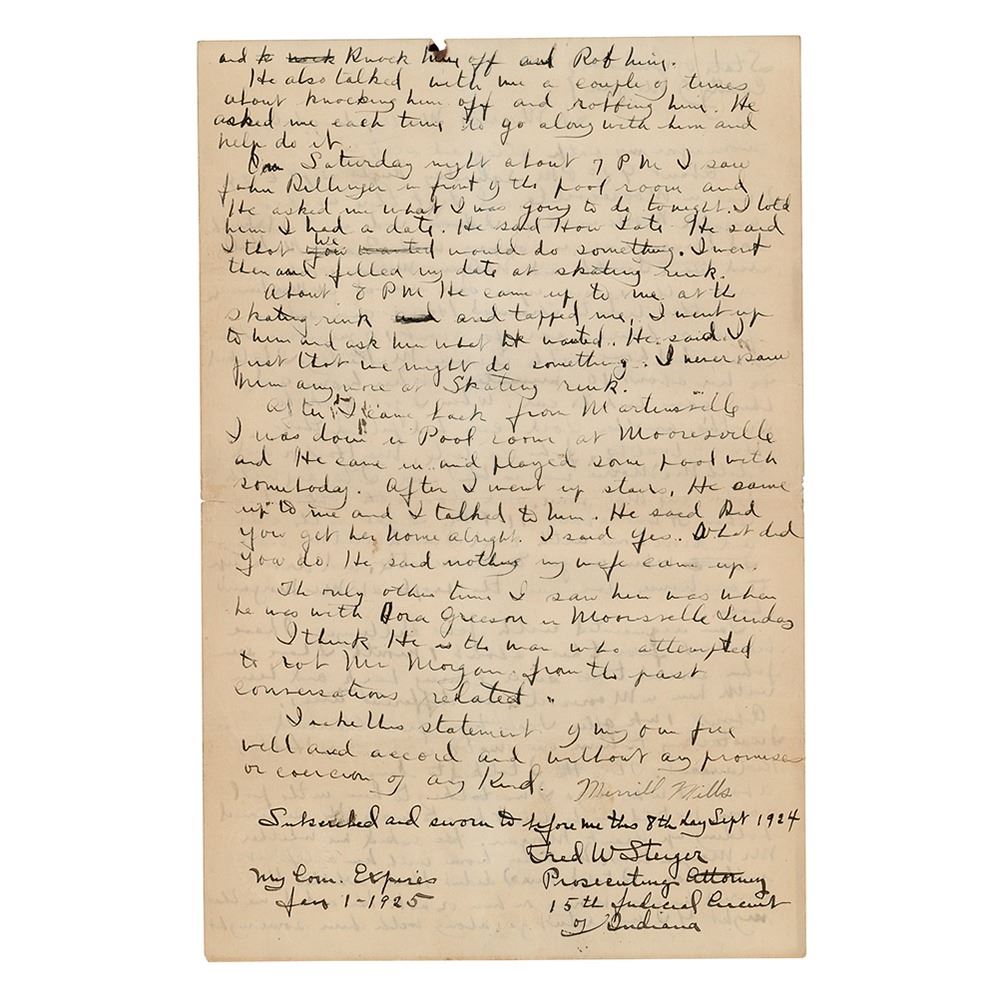 and to nock Knock him off and Rob him.
He also talked with me a couple of times
about knocking him off and robbing him. He
asked me each time to go along with him and
help do it.
On Saturday night about 7 PM I saw
John Dillinger in front of the pool room and
He asked me what I was going to do tonight. I told
him I had a date. He said How Late. He said
I that you we wanted would do something. I went
then and filled my date at skating rink.
About 8 PM He came up to me at the
skating rink and and tapped me, I went up
to him and ask him what He wanted. He said I
just that we might do something. I never saw
him any more at Skating rink.
After I came back from Martinsville
I was down in Pool room at Mooresville
and He came in and played some pool with
somebody. After I went up stairs, He came
up to me and I talked to him. He said Did
you get her home alright. I said yes. What did
you do. He said nothing my wife came up.
Th only other time I saw him was when
he was with Dora Greeson in Mooresville Sunday
I think He is the man who attempted
to rob Mr Morgan from the past
conversations related.
I make this statement of my own free
will and accord and without any promise
or coercion of any Kind. Merrill Mills
Subscribed and sworn to before me this 8th day Sept 1924
Fred W Steiger
My Com. Expires Prosecuting Attorney
Jan 1-1925 15th Judicial Circuit
of Indiana